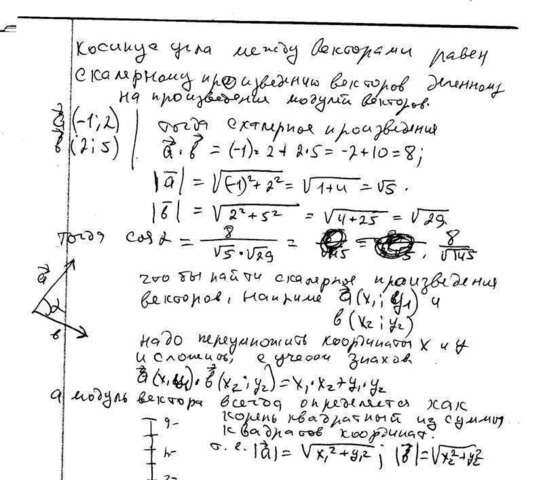 Косинус угла между векторами равен
скалярному произведению векторов деленному
на произведение модулей векторов.
a⃗ (-1; 2)
b⃗ (2; 5)
тогда скалярное произведения
a⃗ · b⃗ = (-1)·2 + 2·5 = -2 + 10 = 8;
|a̅| = √((-1)² + 2²) = √(1+4) = √5.
|b̅| = √(2² + 5²) = √(4+25) = √29.
тогда cos α = 8/(√5 · √29) = 8/√145
a⃗
α
в
что бы найти скалярное произведения
векторов, наприме a⃗(x₁; y₁) и
b(x₂; y₂)
надо перемножить координаты x и y
и сложить, с учетом знаков
a⃗(x₁y₁)·b⃗(x₂; y₂) = x₁·x₂ + y₁·y₂
а модуль вектора всегда определяется как
корень квадратный из суммы
квадратов координат.
т. е. |a⃗| = √(x₁² + y₁²); |b⃗| = √(x₂² + y₂²)